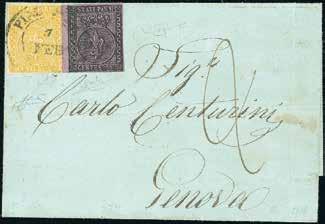 7
FEB
STATI PARM
Sig.r
Carlo Centurini
2
Genova